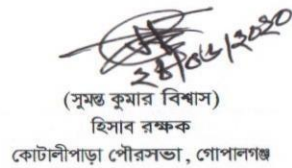 ২৪/০৬/২০২০
(সুমন্ত কুমার বিশ্বাস)
হিসাব রক্ষক
কোটালীপাড়া পৌরসভা , গোপালগঞ্জ